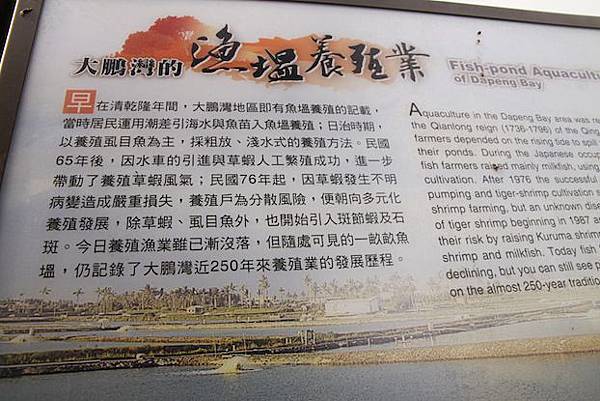 大鵬灣的漁塭養殖業
早在清乾隆年間，大鵬灣地區即有魚塭養殖的記載，
當時居民運用潮差引海水與魚苗入魚塭養殖；日治時期，
以養殖虱目魚為主，採粗放、淺水式的養殖方法。民國
65年後，因水車的引進與草蝦人工繁殖成功，進一步
帶動了養殖草蝦風氣；民國76年起，因草蝦發生不明
病變造成嚴重損失，養殖戶為分散風險，便朝向多元化
養殖發展，除草蝦、虱目魚外，也開始引入斑節蝦及石
斑。今日養殖漁業雖已漸沒落，但隨處可見的一畝畝魚
塭，仍記錄了大鵬灣近250年來養殖業的發展歷程。
Fish-pond Aquacultu
of Dapeng Bay
Aquaculture in the Dapeng Bay area was re
the Qianlong reign (1736-1796) of the Qing
farmers depended on the rising tide to spill
their ponds. During the Japanese occup
fish farmers raised mainly milkfish, using
cultivation. After 1976 the successful
pumping and tiger-shrimp cultivation s
shrimp farming, but an unknown disea
of tiger shrimp beginning in 1987 an
their risk by raising Kuruma shrimp
shrimp and milkfish. Today fish
declining, but you can still see p
on the almost 250-year traditio